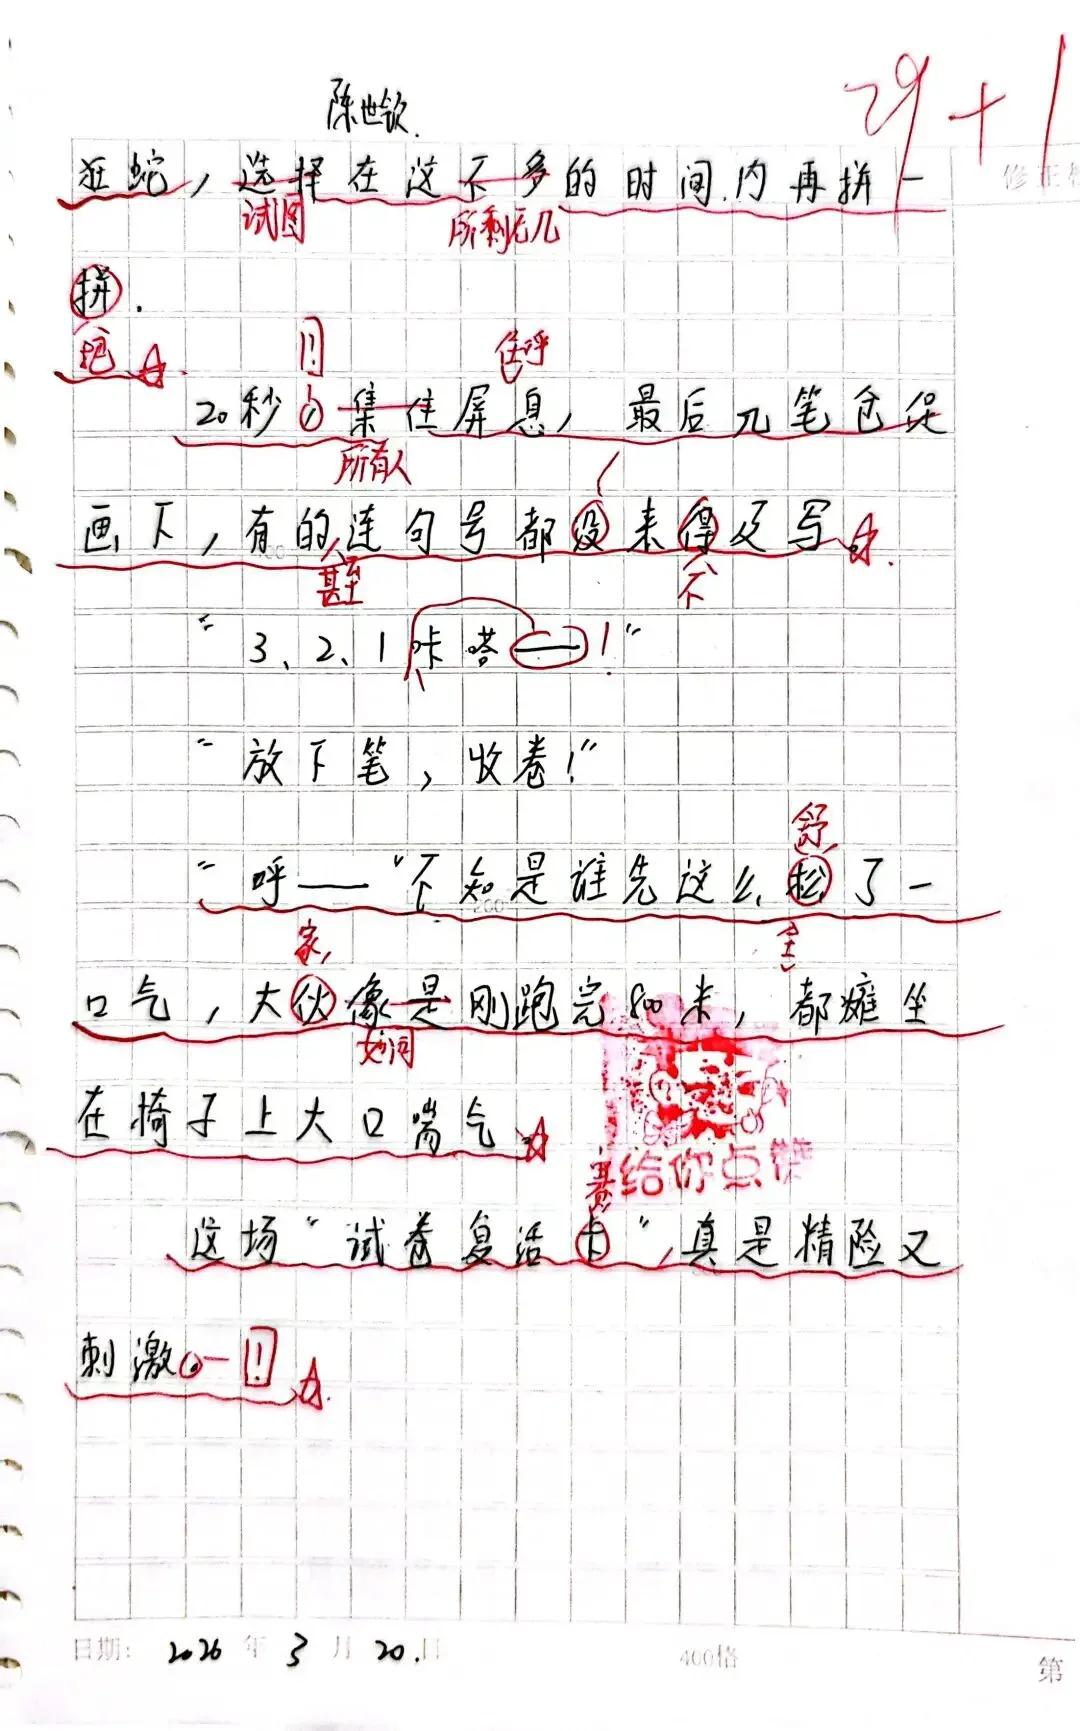 陈世钦.
29+1
修正
狂蛇，选择在这不多的时间内再拼一
试图 所剩无几
拼.
!
住呼
20秒，集住屏息，最后几笔仓促
所有人
画下，有的连句号都没来得及写
甚至 不
“3、2、1咔嗒——！”
“放下笔，收卷！”
舒
“呼——”不知是谁先这么松了一
家
口气，大伙像是刚跑完800米，都瘫坐
如同
在椅子上大口喘气
给你点赞
赛
这场“试卷复活卡”，真是精险又
刺激。!
日期: 2026 年 3 月 20. 日
400格
第